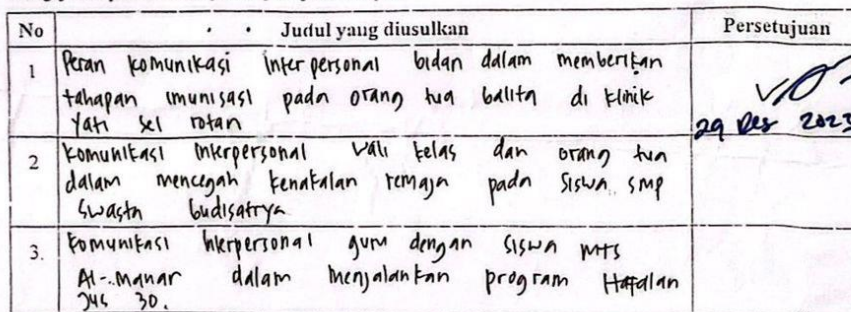 No Judul yang diusulkan Persetujuan
1 Peran komunikasi interpersonal bidan dalam memberikan
tahapan imunisasi pada orang tua balita di klinik
Yati sei rotan
29 Des 2023
2 komunikasi interpersonal wali kelas dan orang tua
dalam mencegah kenakalan remaja pada siswa smp
swasta budisatrya
3. komunikasi interpersonal guru dengan siswa MTS
Al-manar dalam menjalankan program Hafalan
Jus 30.